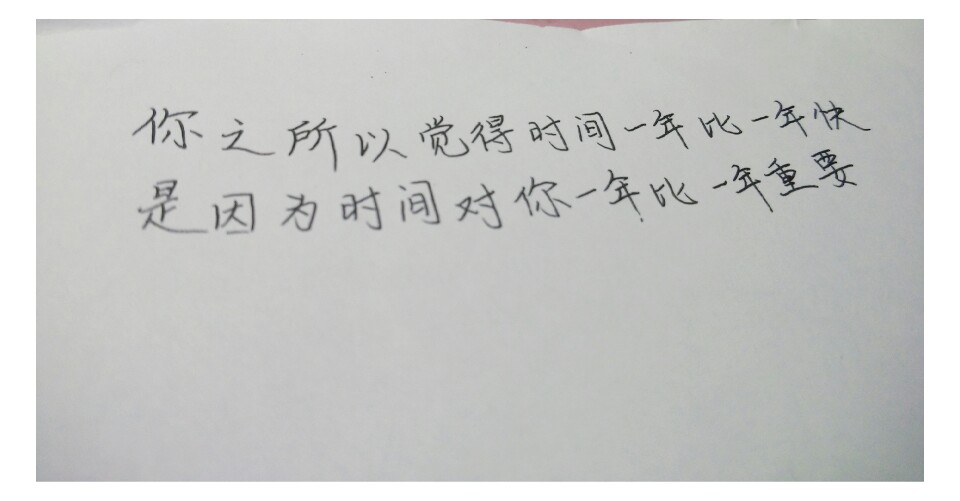 你之所以觉得时间一年比一年快
是因为时间对你一年比一年重要